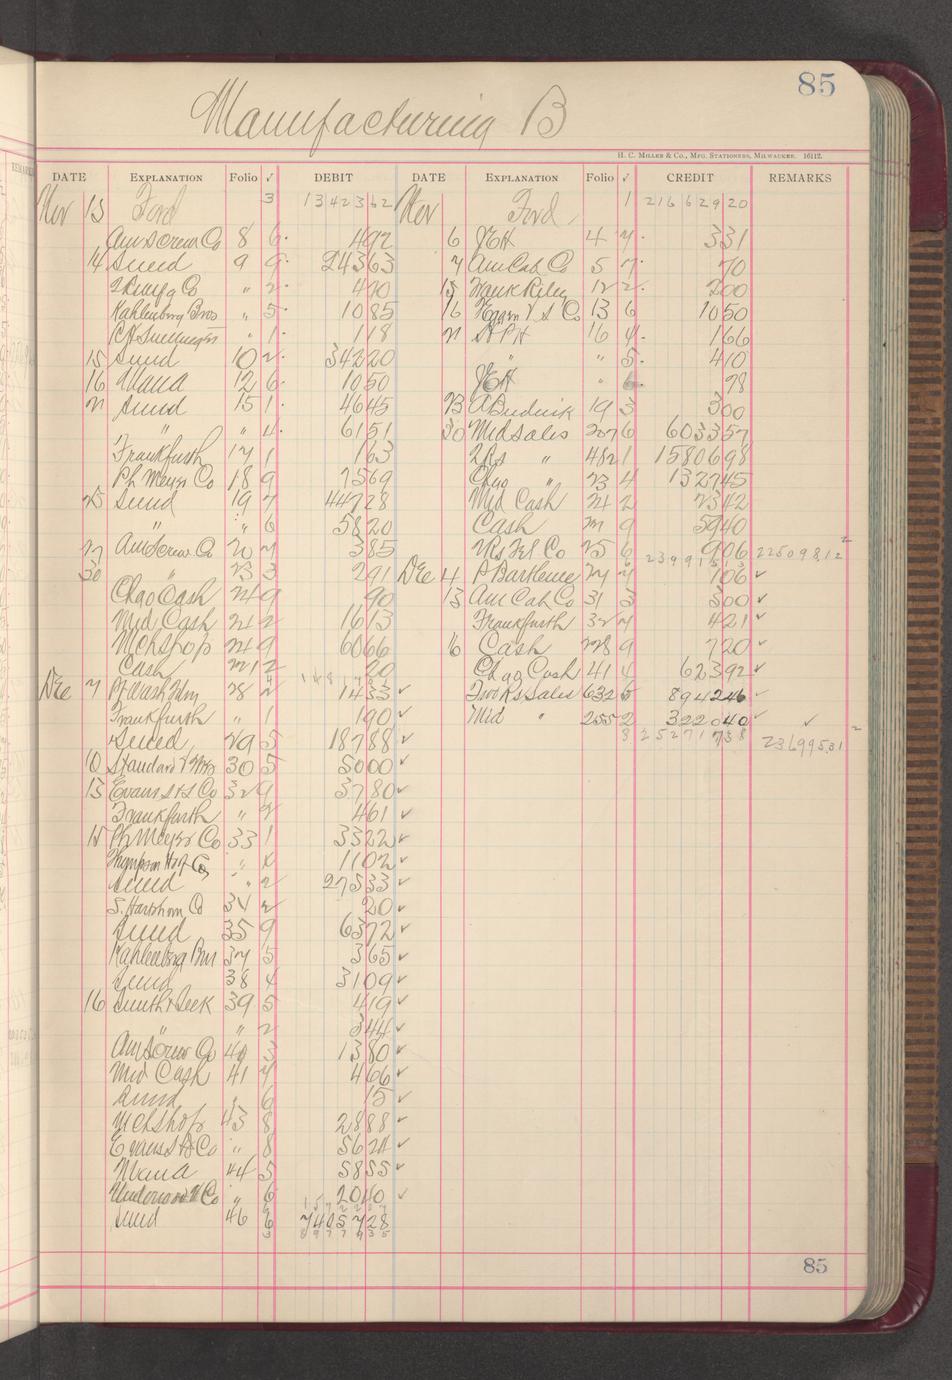 85
Manufacturing B
H. C. Miller & Co., Mfg. Stationers, Milwaukee. 16112.
DATE EXPLANATION Folio ✓ DEBIT DATE EXPLANATION Folio ✓ CREDIT REMARKS
Nov 13 Ford 3 1342362 Nov Ford 1 21662920
Am Screw Co 8 6 492 6 JEH 4 7 331
14 Sund 9 9 24363 7 Am Cab Co 5 7 70
" 2 490 15 Frank Riley 12 2 200
Kahlenberg Bros " 5 1085 16 13 6 1050
" 1 118 16 4 166
15 Sund 10 2 34220 " " 5 410
16 Mana 12 6 1050 JEH " 6 98
Sund 15 1 4645 23 A Budnik 19 3 300
" " 4 6151 30 Mid Sales 207 6 603357
Frankfurth 17 1 163 2Rs " 482 1 1580698
Ph Meyer Co 18 9 7569 Chgo " 23 4 132745
25 Sund 19 7 44728 Mid Cash 24 2 2342
" " 6 5820 Cash 9 5940
27 Am Screw Co 20 7 385 25 6 906 2250981
30 " 23 3 291 Dec 4 27 7 106 ✓
Chgo Cash 24 9 90 13 Am Cab Co 31 3 300 ✓
Mid Cash 24 2 1613 Frankfurth 32 7 421 ✓
Mchshop 24 9 6066 16 Cash 228 9 720 ✓
Cash 20 Chgo Cash 41 4 62392 ✓
Dec 7 28 2 1433 ✓ Two Rs Sales 632 5 894246 ✓
Frankfurth " 1 190 ✓ Mid " 255 2 322040 ✓ ✓
Sund 29 5 18788 ✓ 3 25271738 23699531
10 Standard 30 5 5000 ✓
13 Evans & Co 32 9 3780 ✓
Frankfurth " 2 461 ✓
15 Ph Meyer Co 33 1 3322 ✓
Thompson " 1102 ✓
Sund " 2 27533 ✓
S. Hartshorn Co 34 2 20 ✓
Sund 35 9 6372 ✓
Kahlenberg Bros 37 5 365 ✓
Sund 38 4 3109 ✓
16 39 5 419 ✓
" " 2 344 ✓
Am Screw Co 40 3 1380 ✓
Mid Cash 41 7 466 ✓
Sund " 6 15 ✓
Mchshop 43 8 2888 ✓
Evans Co " 8 5624 ✓
Mana 44 5 5855 ✓
Underwood Co " 6 2040 ✓
Sund 46 6 7405728
85